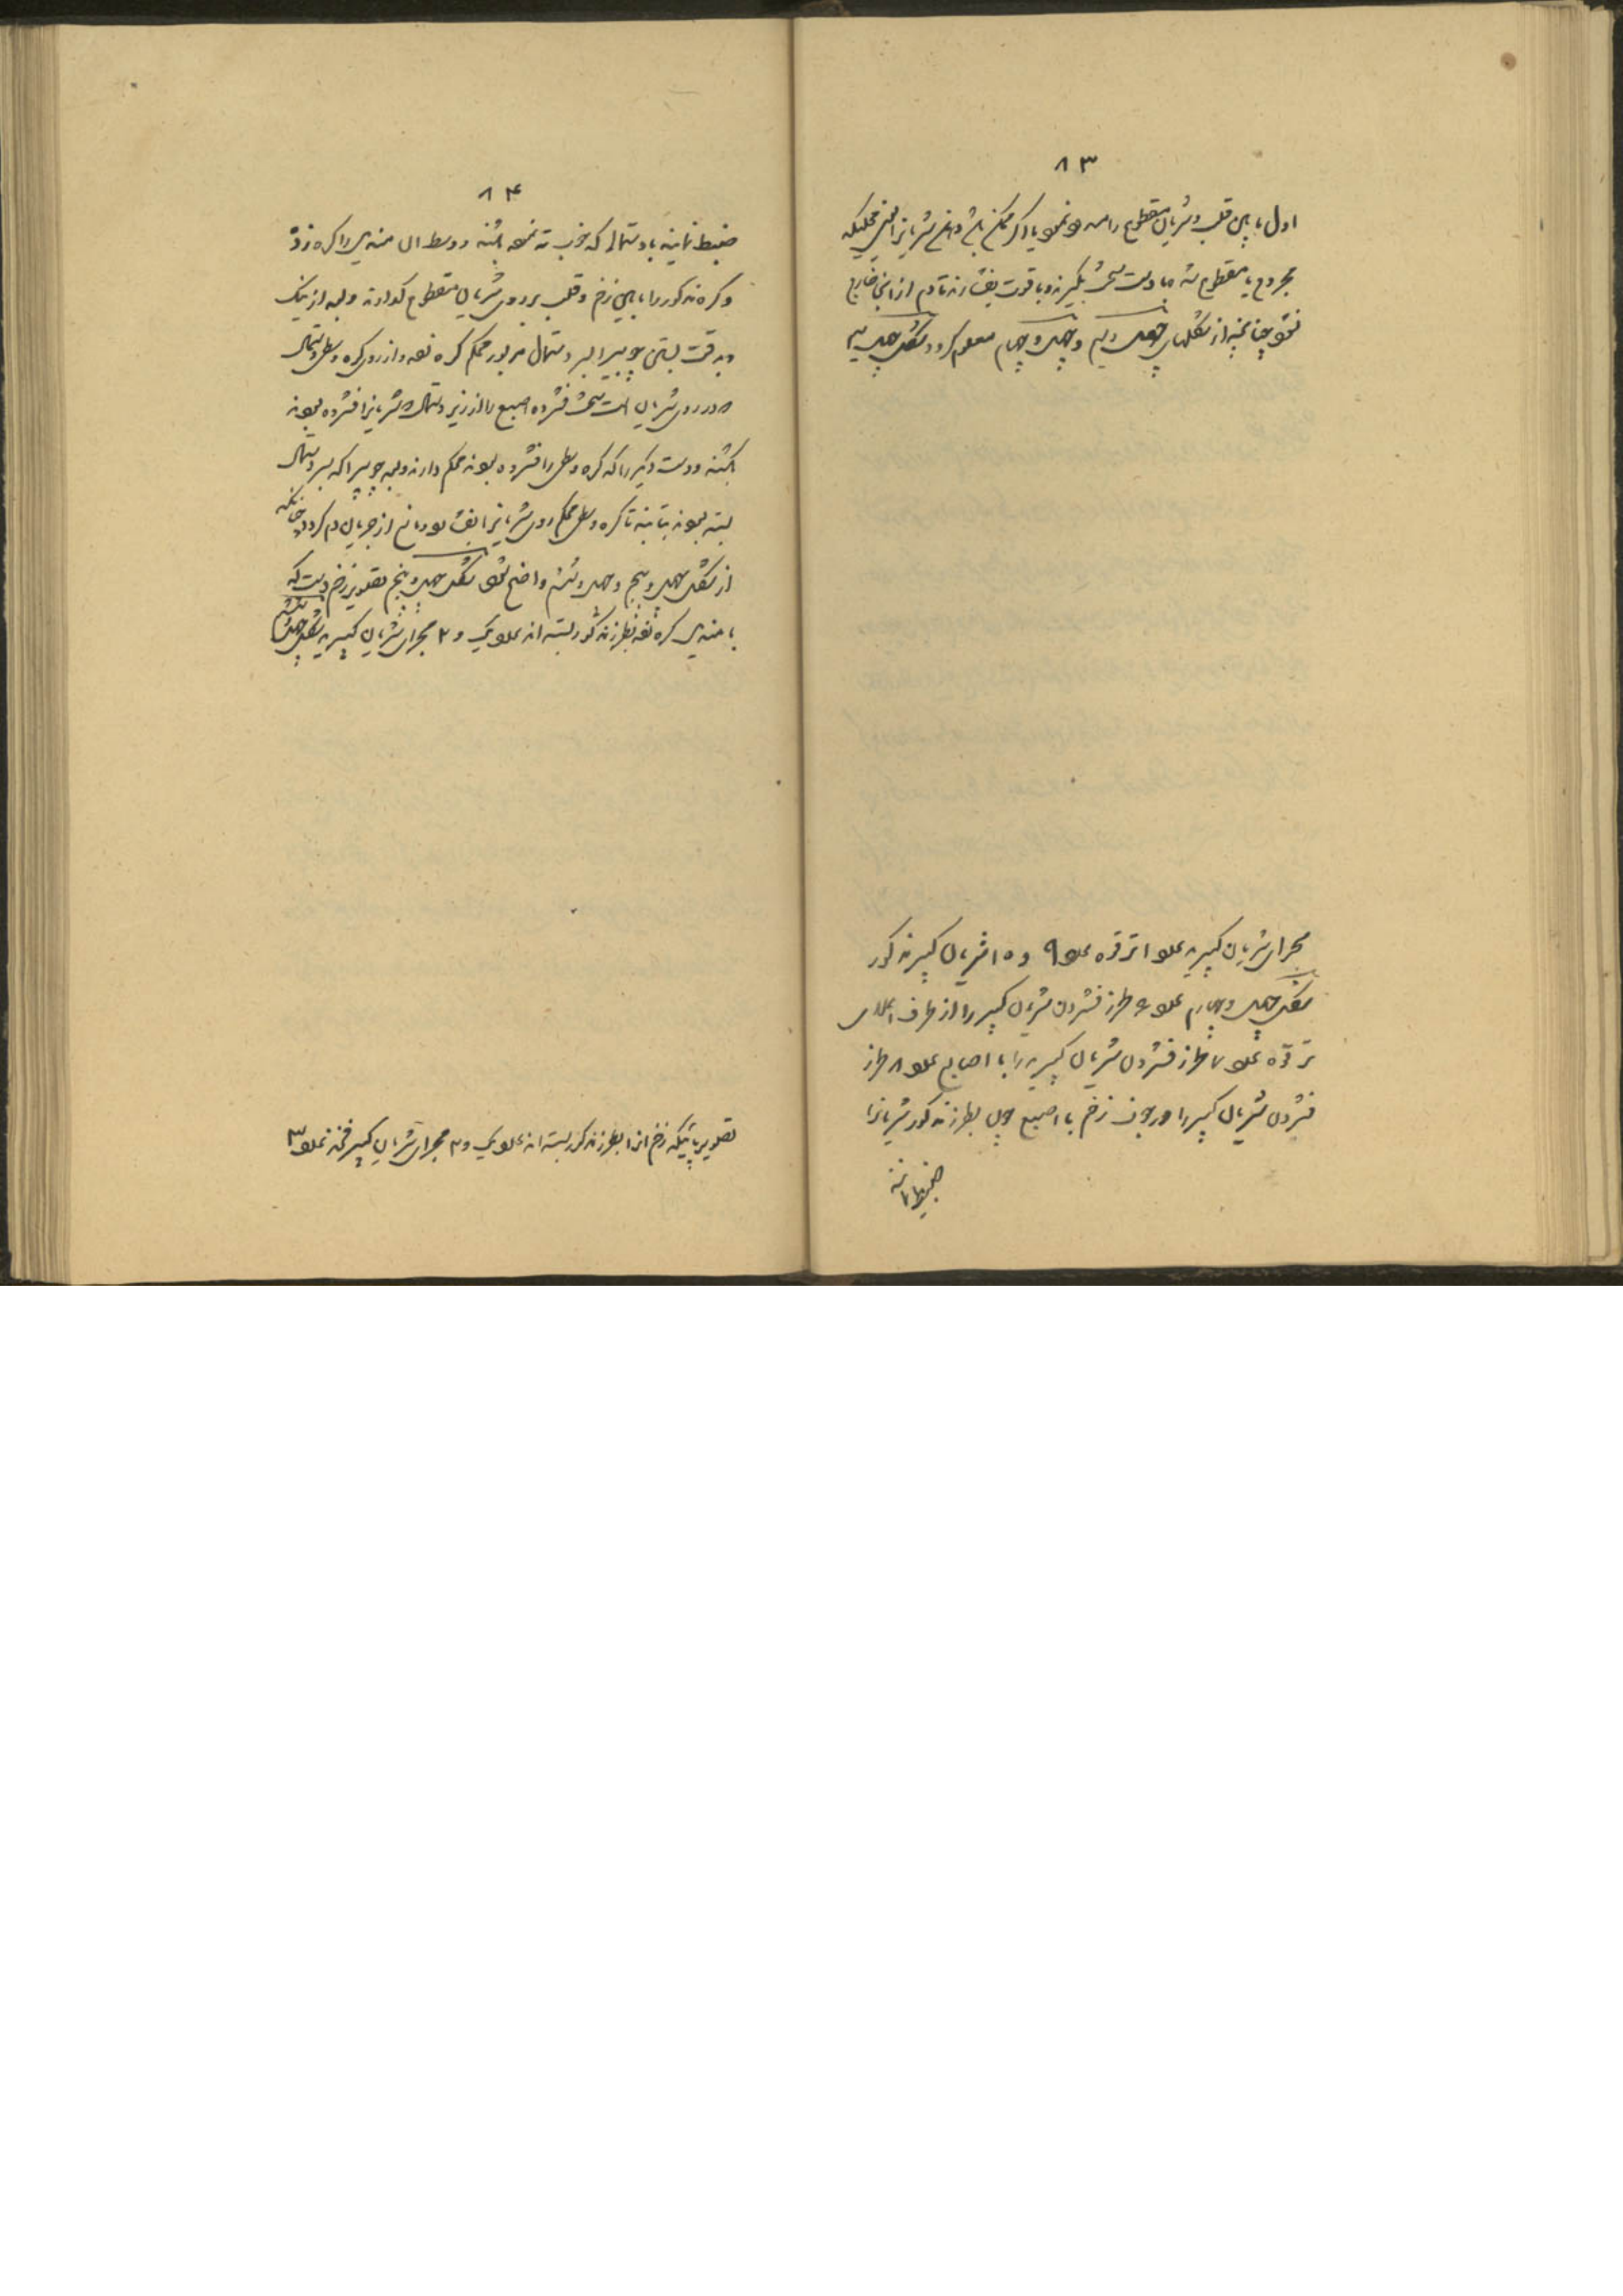 ۸۳
اول مابین قلب و شریان مقطوع را مسدود نمود یا اگر ممکن باشد دهنهٔ شریانرا یعنی محلیکه
مجروح یا مقطوع شده با دست سخت بگیرند و با قوت بفشارند تا دم از آن خارج
نشود چنانچه از شکلهای چهل و سیم و چهل و چهارم معلوم گردد شکل چهل و سیم
مجرای شریان کبیر عدد ۱ ترقوه عدد ۹ و ۱۰ شریان کبیر مذکور
شکل چهل و چهارم عدد ۶ طرز فشردن شریان کبیر را از طرف اعلای
ترقوه عدد ۷ طرز فشردن شریان کبیر را با اصابع عدد ۸ طرز
فشردن شریان کبیر را در جوف زخم با اصبع چون بطرز مذکور شریانرا
ضبط نمایند
۸۴
ضبط نمایند با دستمالی که خوب ته نموده باشند و وسط آن مندیل را گره زده
و گره مذکور را مابین زخم و قلب بر روی شریان مقطوع گذارند و بعد از نیک
و بدقت بستن چوبیرا بسر دستمال مزبور محکم گره نموده و از روی گره وسطی دستمال
که در روی شریان است سخت فشرده اصبع را از زیر دستمال که شریانرا فشرده بودند
بکشند و دست دیگر را که گره وسطی را فشرده بودند محکم دارند و بعد چوبیرا که بسر دستمال
بسته بودند بتابند تا گره وسطی محکم روی شریانرا بفشارد و مانع از جریان دم گردد چنانکه
از شکل چهل و پنجم و چهل و ششم واضح شود شکل چهل و پنجم تصویر زخم دست که
با مندیل گره شده بطرز مذکور بسته اند عدد یک و ۲ مجرای شریان کبیر شکل چهل و ششم
تصویر پائیکه زخم آنرا بطرز مذکور بسته اند عدد یک و ۲ مجرای شریان کبیر فخذ عدد ۳